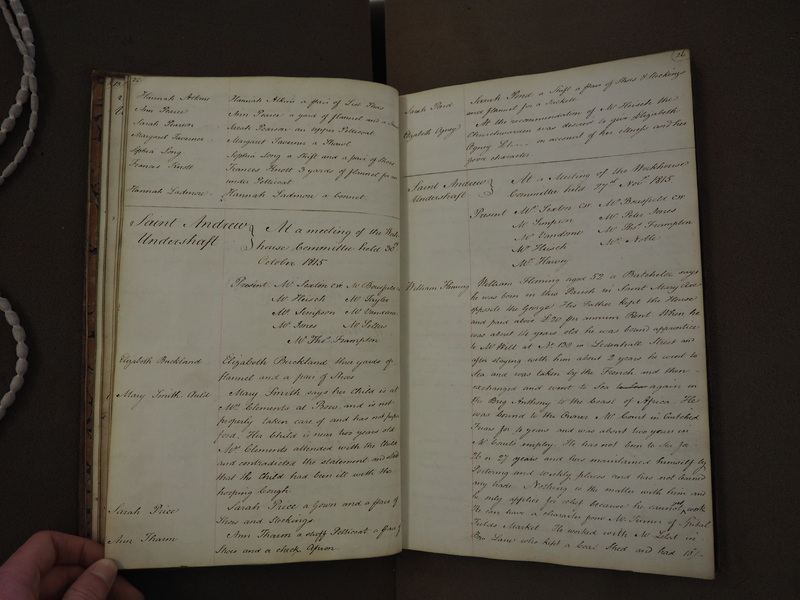 Hannah Atkins Hannah Atkins a pair of Shoes
Ann Pearce Ann Pearce a yard of flannel and a
Sarah Pearson Sarah Pearson an upper Petticoat
Margaret Taverner Margaret Taverner a Shawl
Sophia Long Sophia Long a Shift and a pair of Shoes
Frances 3 yards of flannel for an
under Petticoat
Hannah Ladmore Hannah Ladmore a bonnet
Saint Andrew
Undershaft
At a meeting of the Work
house Committee held 30th
October 1815
Present Mr Sexton CW Mr Bousfield
Mr Hirsch Mr Taylor
Mr Simpson Mr Vandome
Mr Jones Mr Teller
Mr Thos Frampton
Elizabeth Buckland Elizabeth Buckland three yards of
flannel and a pair of Shoes
Mary Smith Child Mary Smith says her Child is at
Mrs Clements at Bow and is not
properly taken care of and has not
food, Her Child is near two years old
Mrs Clements attended with the Child
and contradicted the statement and
that the Child had been ill with the
hooping Cough
Sarah Price Sarah Price a Gown and a pair of
Shoes and Stockings
Ann Tharon Ann Tharon a Petticoat a pair of
Shoes and a check Apron
Sarah Pond Sarah Pond a Shift a pair of Shoes & Stockings
and flannel for a Jackett
Elizabeth Ogway At the recommendation of Mr Hirsch the
Churchwarden was desired to give Elizabeth
Ogway £1 on account of her and her
good character
Saint Andrew
Undershaft
At a Meeting of the Workhouse
Committee held 27th Novr 1815
Present Mr Sexton CW Mr Bousfield CW
Mr Simpson Mr Peter Jones
Mr Vandome Mr Thos Frampton
Mr Hirsch Mr Noble
Mr Harvey
William Fleming William Fleming aged 52 a Batchelor says
he was born in this Parish in Saint Mary Axe
opposite the George His Father kept the House
and paid about £20 per annum Rent When he
was about 14 years old he was bound apprentice
to Mr Witt at No. 130 in Leadenhall Street and
after staying with him about 2 years he went to
Sea and was taken by the French and then
exchanged and went to Sea again in
the Brig Anthony to the Coast of Africa. He
was bound to the Owner Mr Court in Crutched
Friars for 4 years and was about two years in
Mr Courts employ. He has not been to Sea for
26 or 27 years and has maintained himself by
Portering and weekly places and has not
any trade. Nothing is the matter with him and
he only applies for relief because he cannot get work
He can have a character from Mr of Spital
Fields Market. He worked with Mr in
Bow Lane who kept a Shed and had 15/-